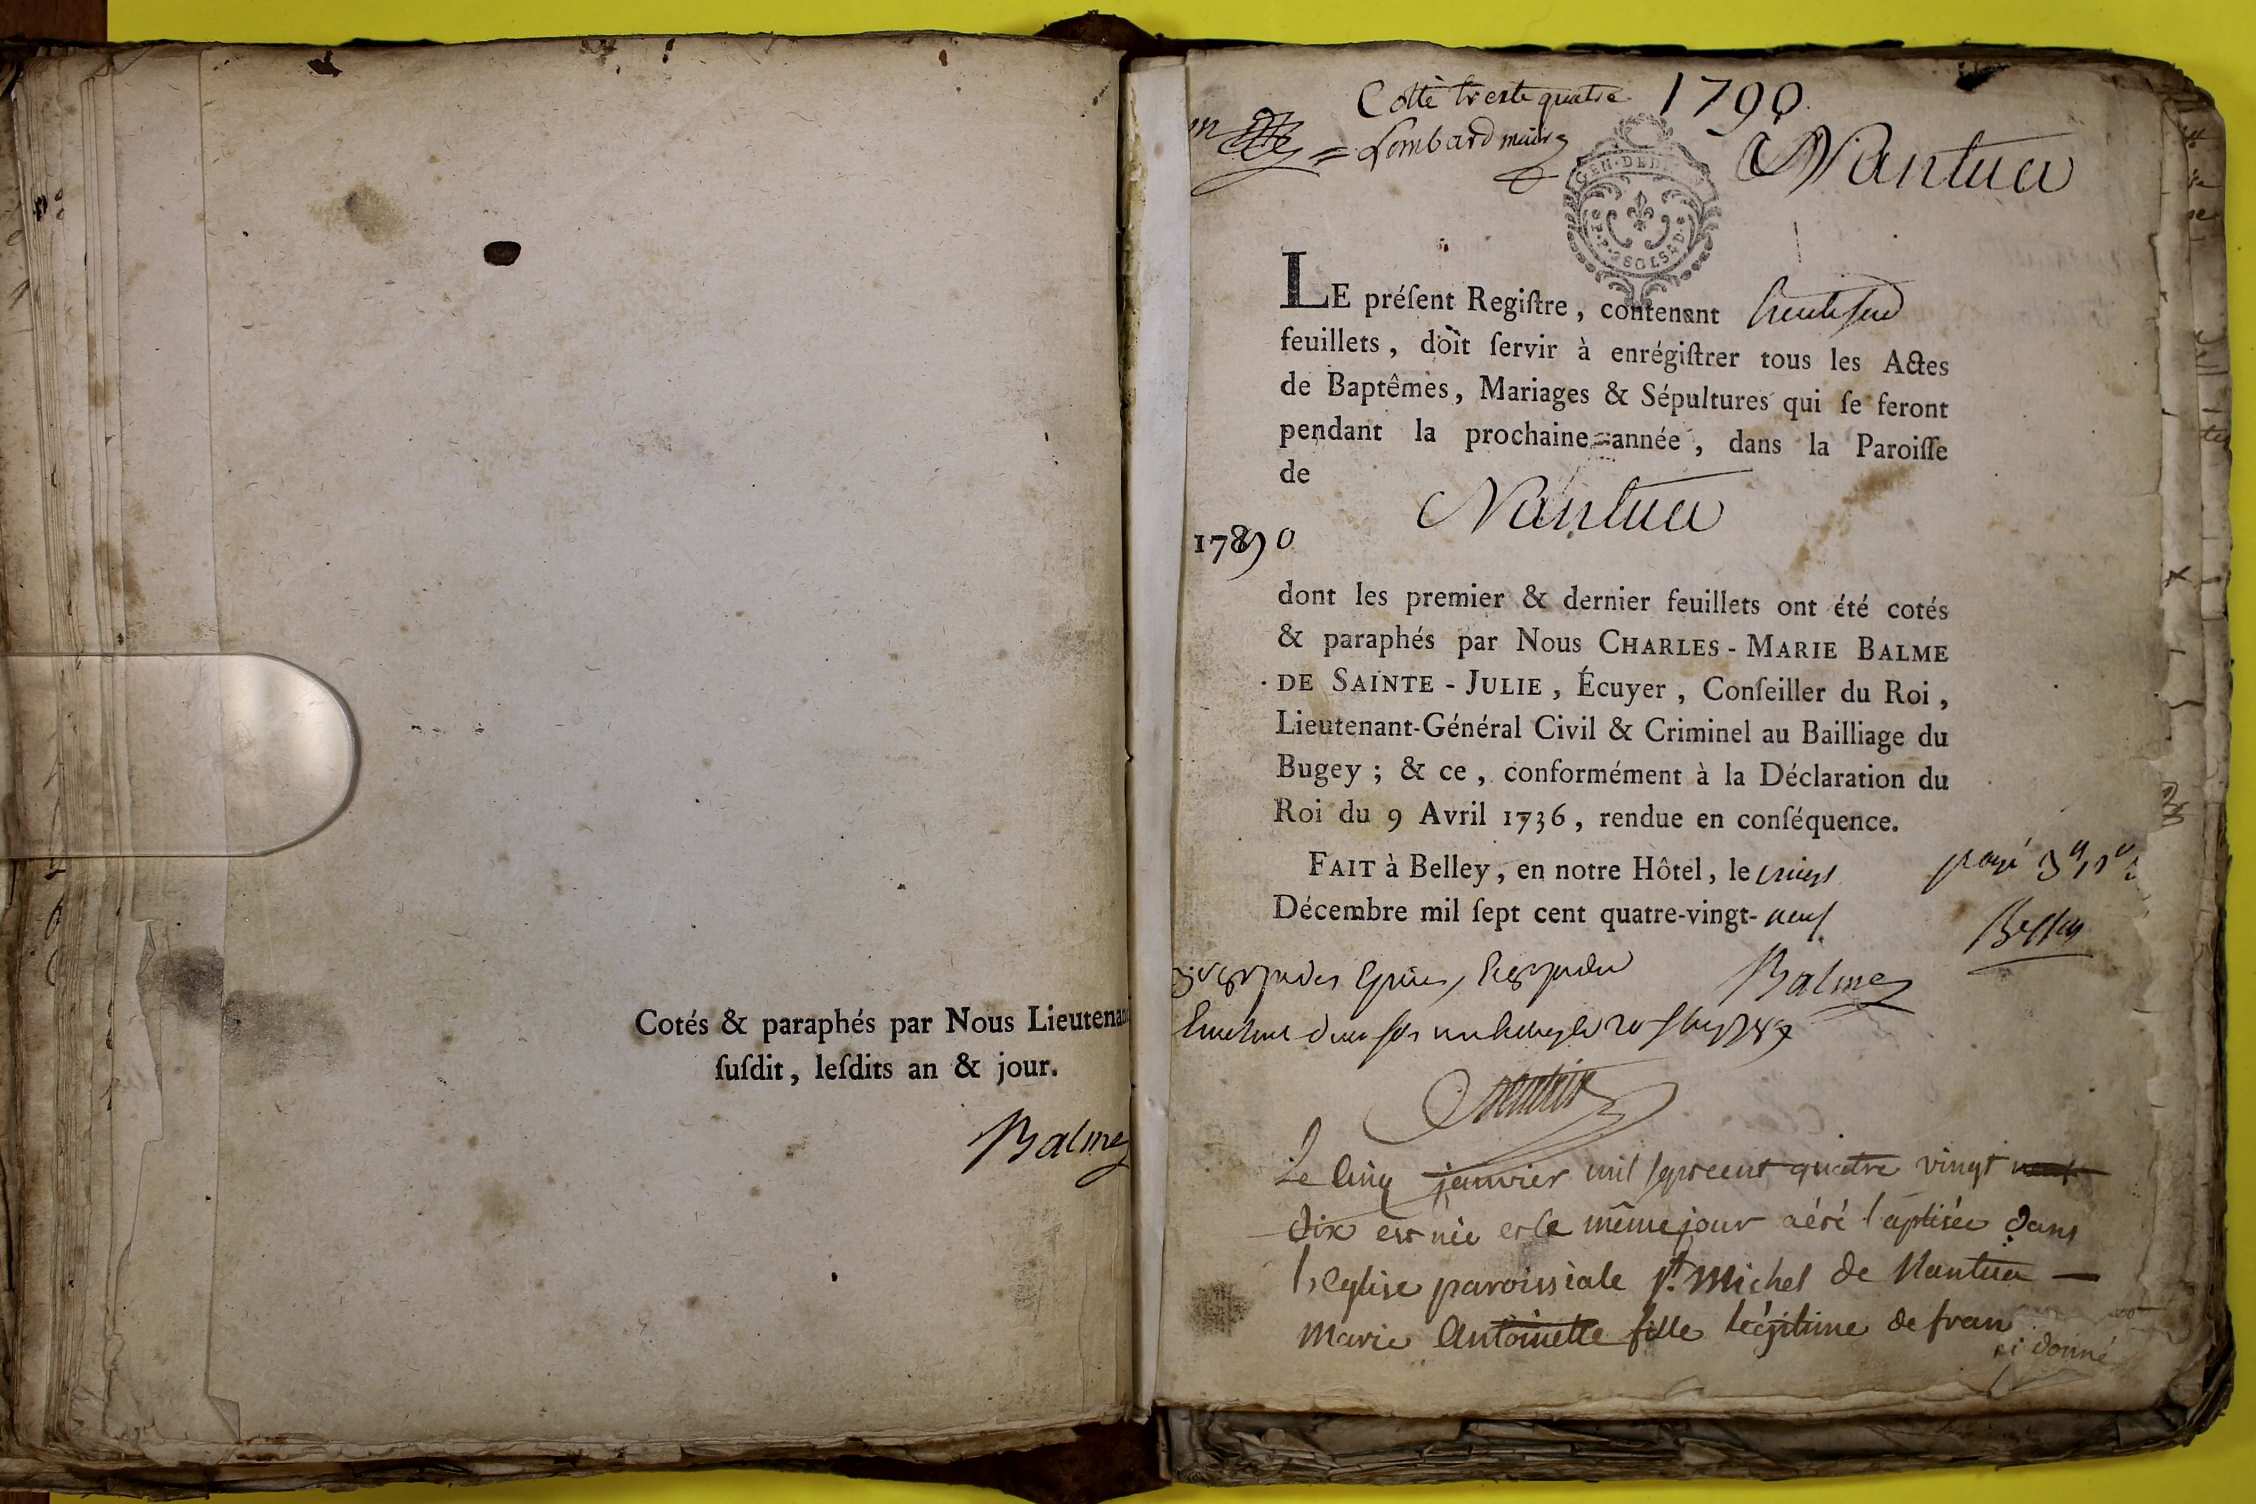 Cotés & paraphés par Nous Lieutenan
ſuſdit, leſdits an & jour.
Balme
Cotte trente quatre 1790
Lombard maire
Nantua
GEN. DE D
LE préſent Regiſtre, contenant
feuillets, doit ſervir à enrégiſtrer tous les Actes
de Baptêmes, Mariages & Sépultures qui ſe feront
pendant la prochaine année, dans la Paroiſſe
de
Nantua
1790
dont les premier & dernier feuillets ont été cotés
& paraphés par Nous CHARLES-MARIE BALME
DE SAINTE-JULIE, Écuyer, Conſeiller du Roi,
Lieutenant-Général Civil & Criminel au Bailliage du
Bugey; & ce, conformément à la Déclaration du
Roi du 9 Avril 1736, rendue en conſéquence.
FAIT à Belley, en notre Hôtel, le vingt
payé 3
Décembre mil ſept cent quatre-vingt-neuf
Balme
Le cinq janvier mil sept cent quatre vingt neuf
dix est née et le même jour a été baptisée dans
l'eglise paroissiale St. Michel de Nantua
Marie Antoinette fille légitime de fran
donné